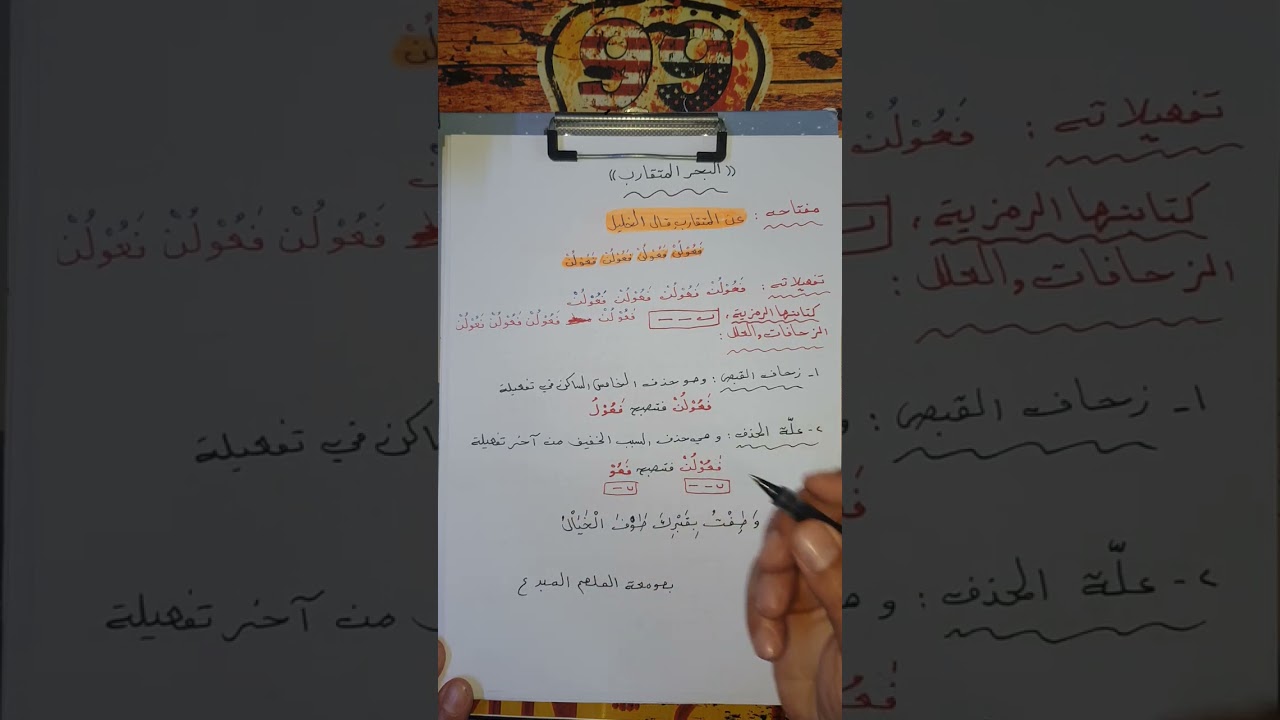 99
((البحر المتقارب))
مفتاحه : عن المتقارب قال الخليل
فَعُوْلُنْ فَعُوْلُنْ فَعُوْلُنْ فَعُوْلُنْ
تفعيلاته : فَعُوْلُنْ فَعُوْلُنْ فَعُوْلُنْ فَعُوْلُنْ
كتابتها الرمزية : ب – – فَعُوْلُنْ فَعُوْلُنْ فَعُوْلُنْ فَعُوْلُنْ
الزحافات والعلل :
١- زحاف القبض : وهو حذف الخامس الساكن في تفعيلة
فَعُوْلُنْ فتصبح فَعُوْلُ
٢- علّة الحذف : وهي حذف السبب الخفيف من آخر تفعيلة
فَعُوْلُنْ فتصبح فَعُوْ
ب – – ب –
وَطِفْتُ بِقَبْرِكَ طَوْفَ الْخَيَالْ
بصومعة الملهم المبدع